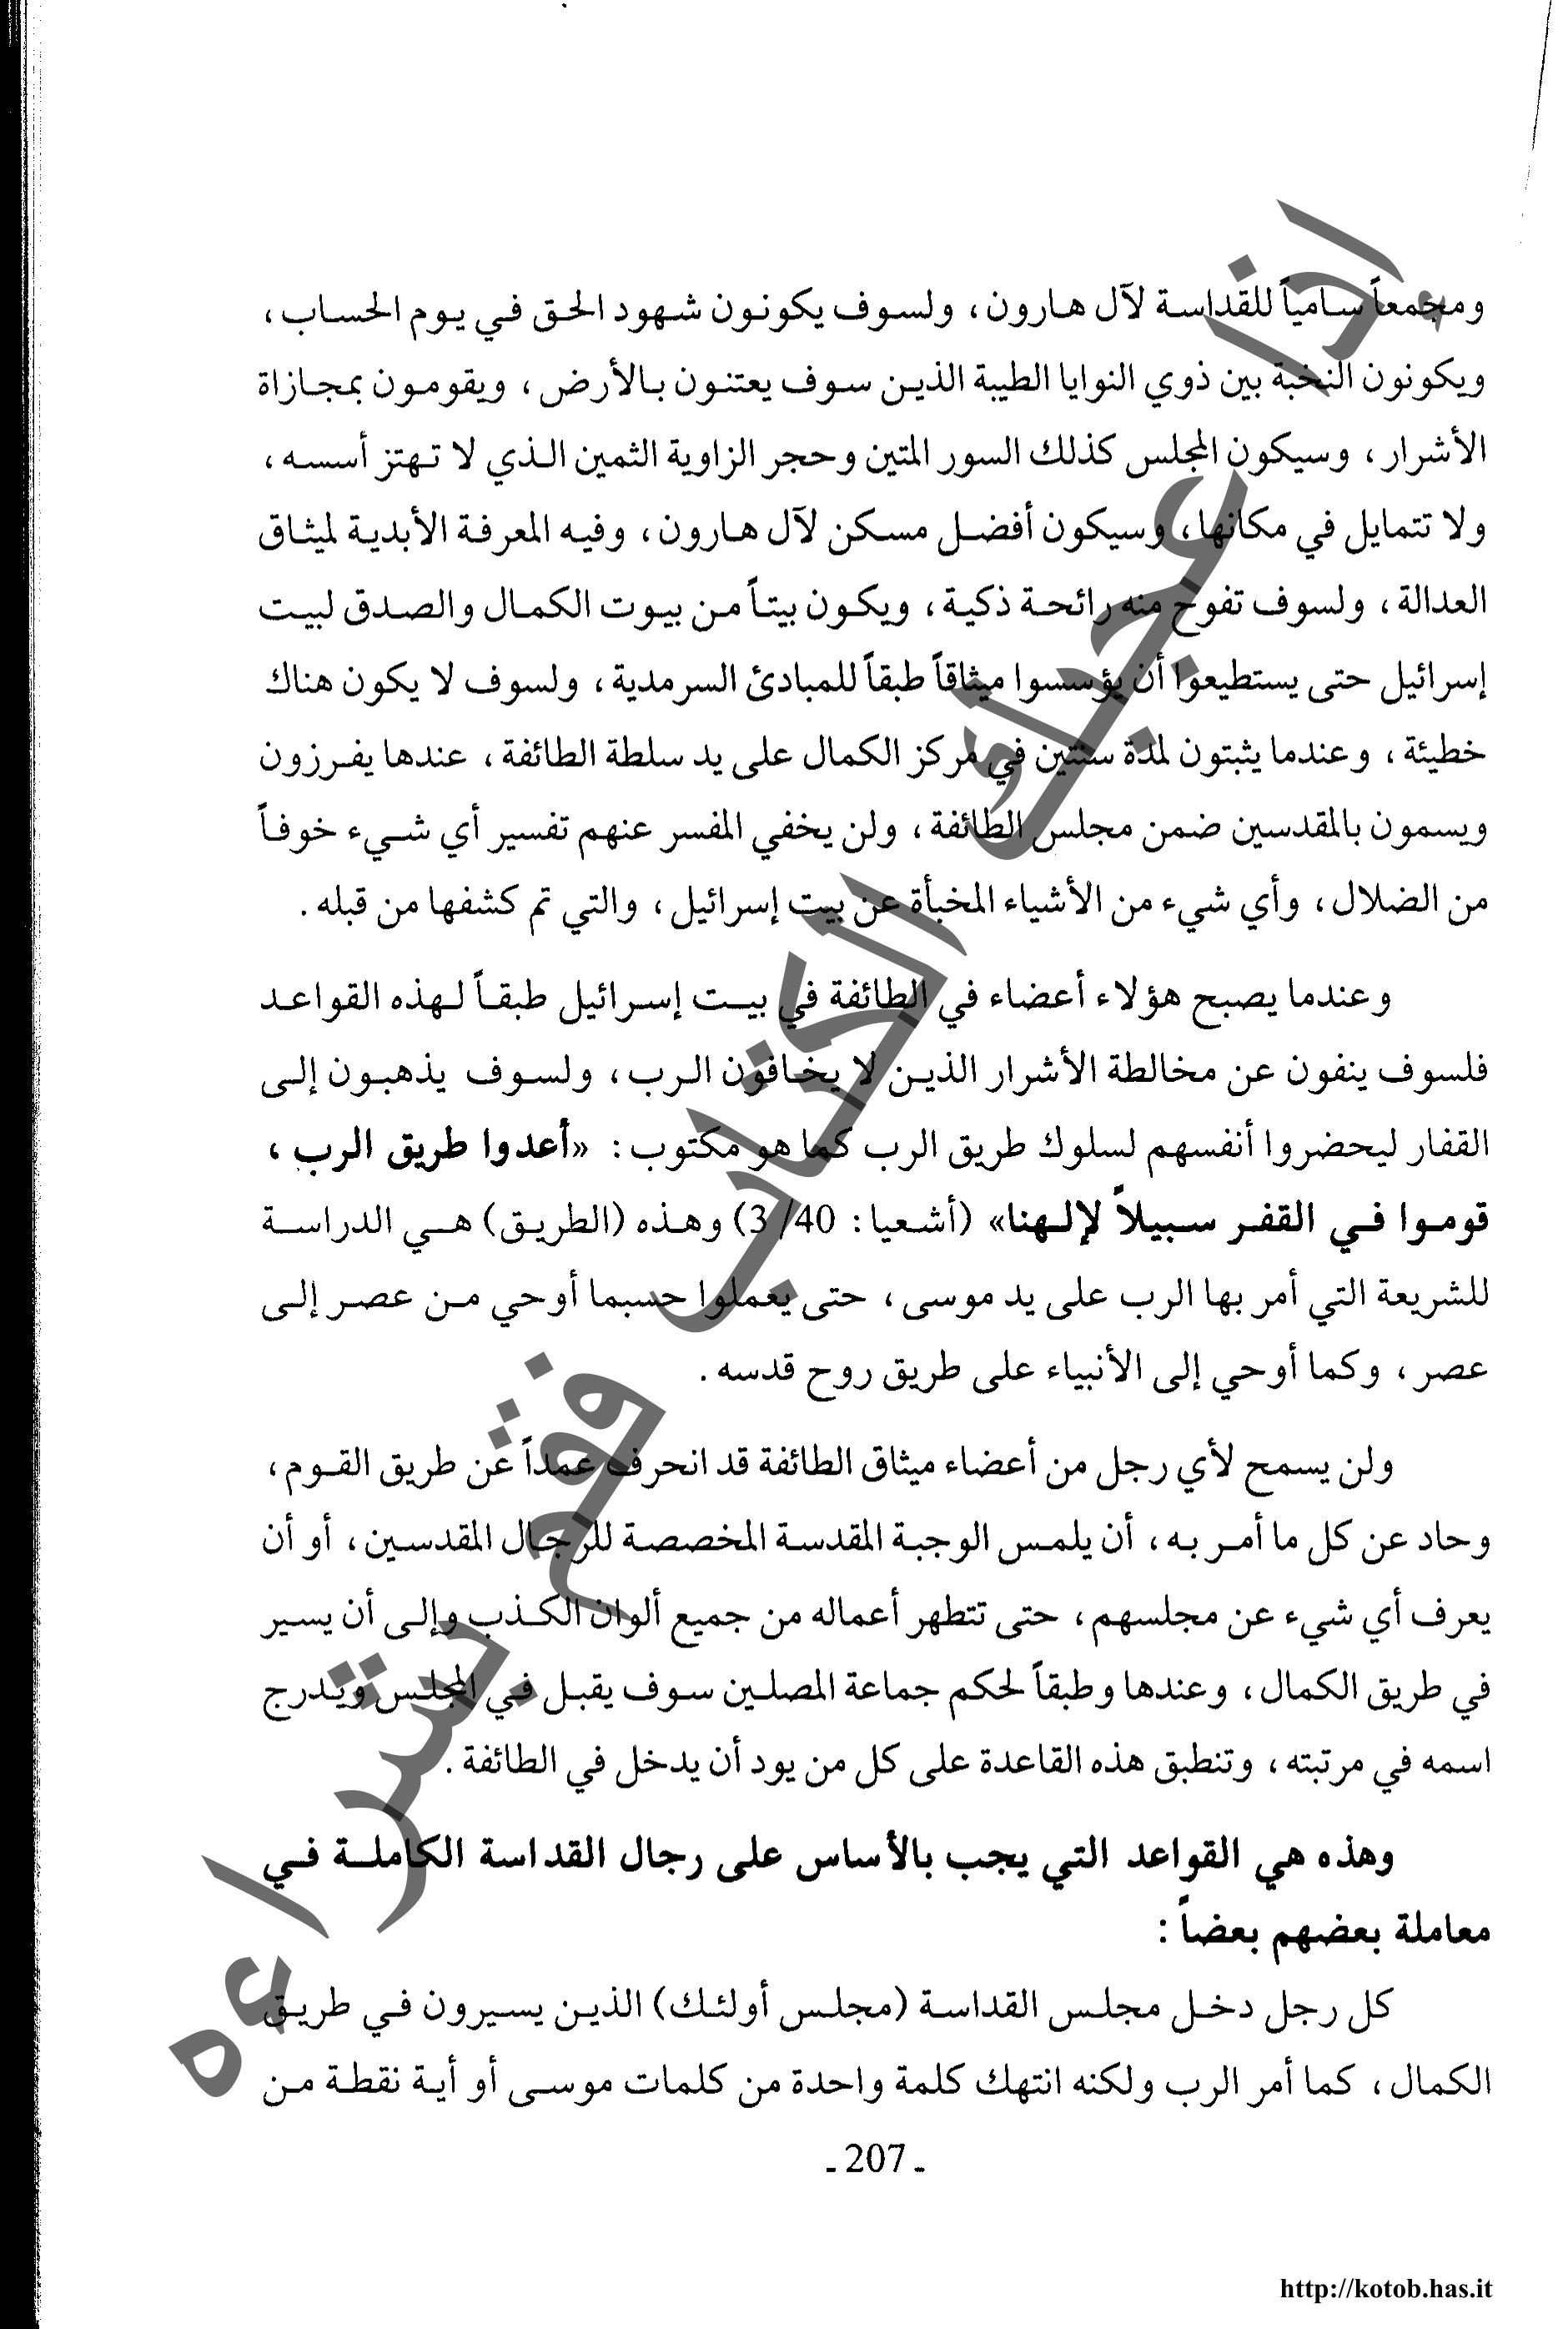 ومجمعاً سامياً للقداسة لآل هارون، ولسوف يكونون شهود الحق في يوم الحساب،
ويكونون النخبة بين ذوي النوايا الطيبة الذين سوف يعتنون بالأرض، ويقومون بمجازاة
الأشرار، وسيكون المجلس كذلك السور المتين وحجر الزاوية الثمين الذي لا تهتز أسسه،
ولا تتمايل في مكانها، وسيكون أفضل مسكن لآل هارون، وفيه المعرفة الأبدية لميثاق
العدالة، ولسوف تفوح منه رائحة ذكية، ويكون بيتاً من بيوت الكمال والصدق لبيت
إسرائيل حتى يستطيعوا أن يؤسسوا ميثاقاً طبقاً للمبادئ السرمدية، ولسوف لا يكون هناك
خطيئة، وعندما يثبتون لمدة سنتين في مركز الكمال على يد سلطة الطائفة، عندها يفرزون
ويسمون بالمقدسين ضمن مجلس الطائفة، ولن يخفي المفسر عنهم تفسير أي شيء خوفاً
من الضلال، وأي شيء من الأشياء المخبأة عن بيت إسرائيل، والتي تم كشفها من قبله.
وعندما يصبح هؤلاء أعضاء في الطائفة في بيت إسرائيل طبقاً لهذه القواعد
فلسوف ينفون عن مخالطة الأشرار الذين لا يخافون الرب، ولسوف يذهبون إلى
القفار ليحضروا أنفسهم لسلوك طريق الرب كما هو مكتوب: «أعدوا طريق الرب،
قوموا في القفر سبيلاً لإلهنا» (أشعيا: 40/ 3) وهذه (الطريق) هي الدراسة
للشريعة التي أمر بها الرب على يد موسى، حتى يعملوا حسبما أوحي من عصر إلى
عصر، وكما أوحي إلى الأنبياء على طريق روح قدسه.
ولن يسمح لأي رجل من أعضاء ميثاق الطائفة قد انحرف عمداً عن طريق القوم،
وحاد عن كل ما أمر به، أن يلمس الوجبة المقدسة المخصصة للرجال المقدسين، أو أن
يعرف أي شيء عن مجلسهم، حتى تتطهر أعماله من جميع ألوان الكذب وإلى أن يسير
في طريق الكمال، وعندها وطبقاً لحكم جماعة المصلين سوف يقبل في المجلس ويدرج
اسمه في مرتبته، وتنطبق هذه القاعدة على كل من يود أن يدخل في الطائفة.
وهذه هي القواعد التي يجب بالأساس على رجال القداسة الكاملة في
معاملة بعضهم بعضاً:
كل رجل دخل مجلس القداسة (مجلس أولئك) الذين يسيرون في طريق
الكمال، كما أمر الرب ولكنه انتهك كلمة واحدة من كلمات موسى أو أية نقطة من
- 207 -
http://kotob.has.it
إذا أعجبك الكتاب فقم بشراءه